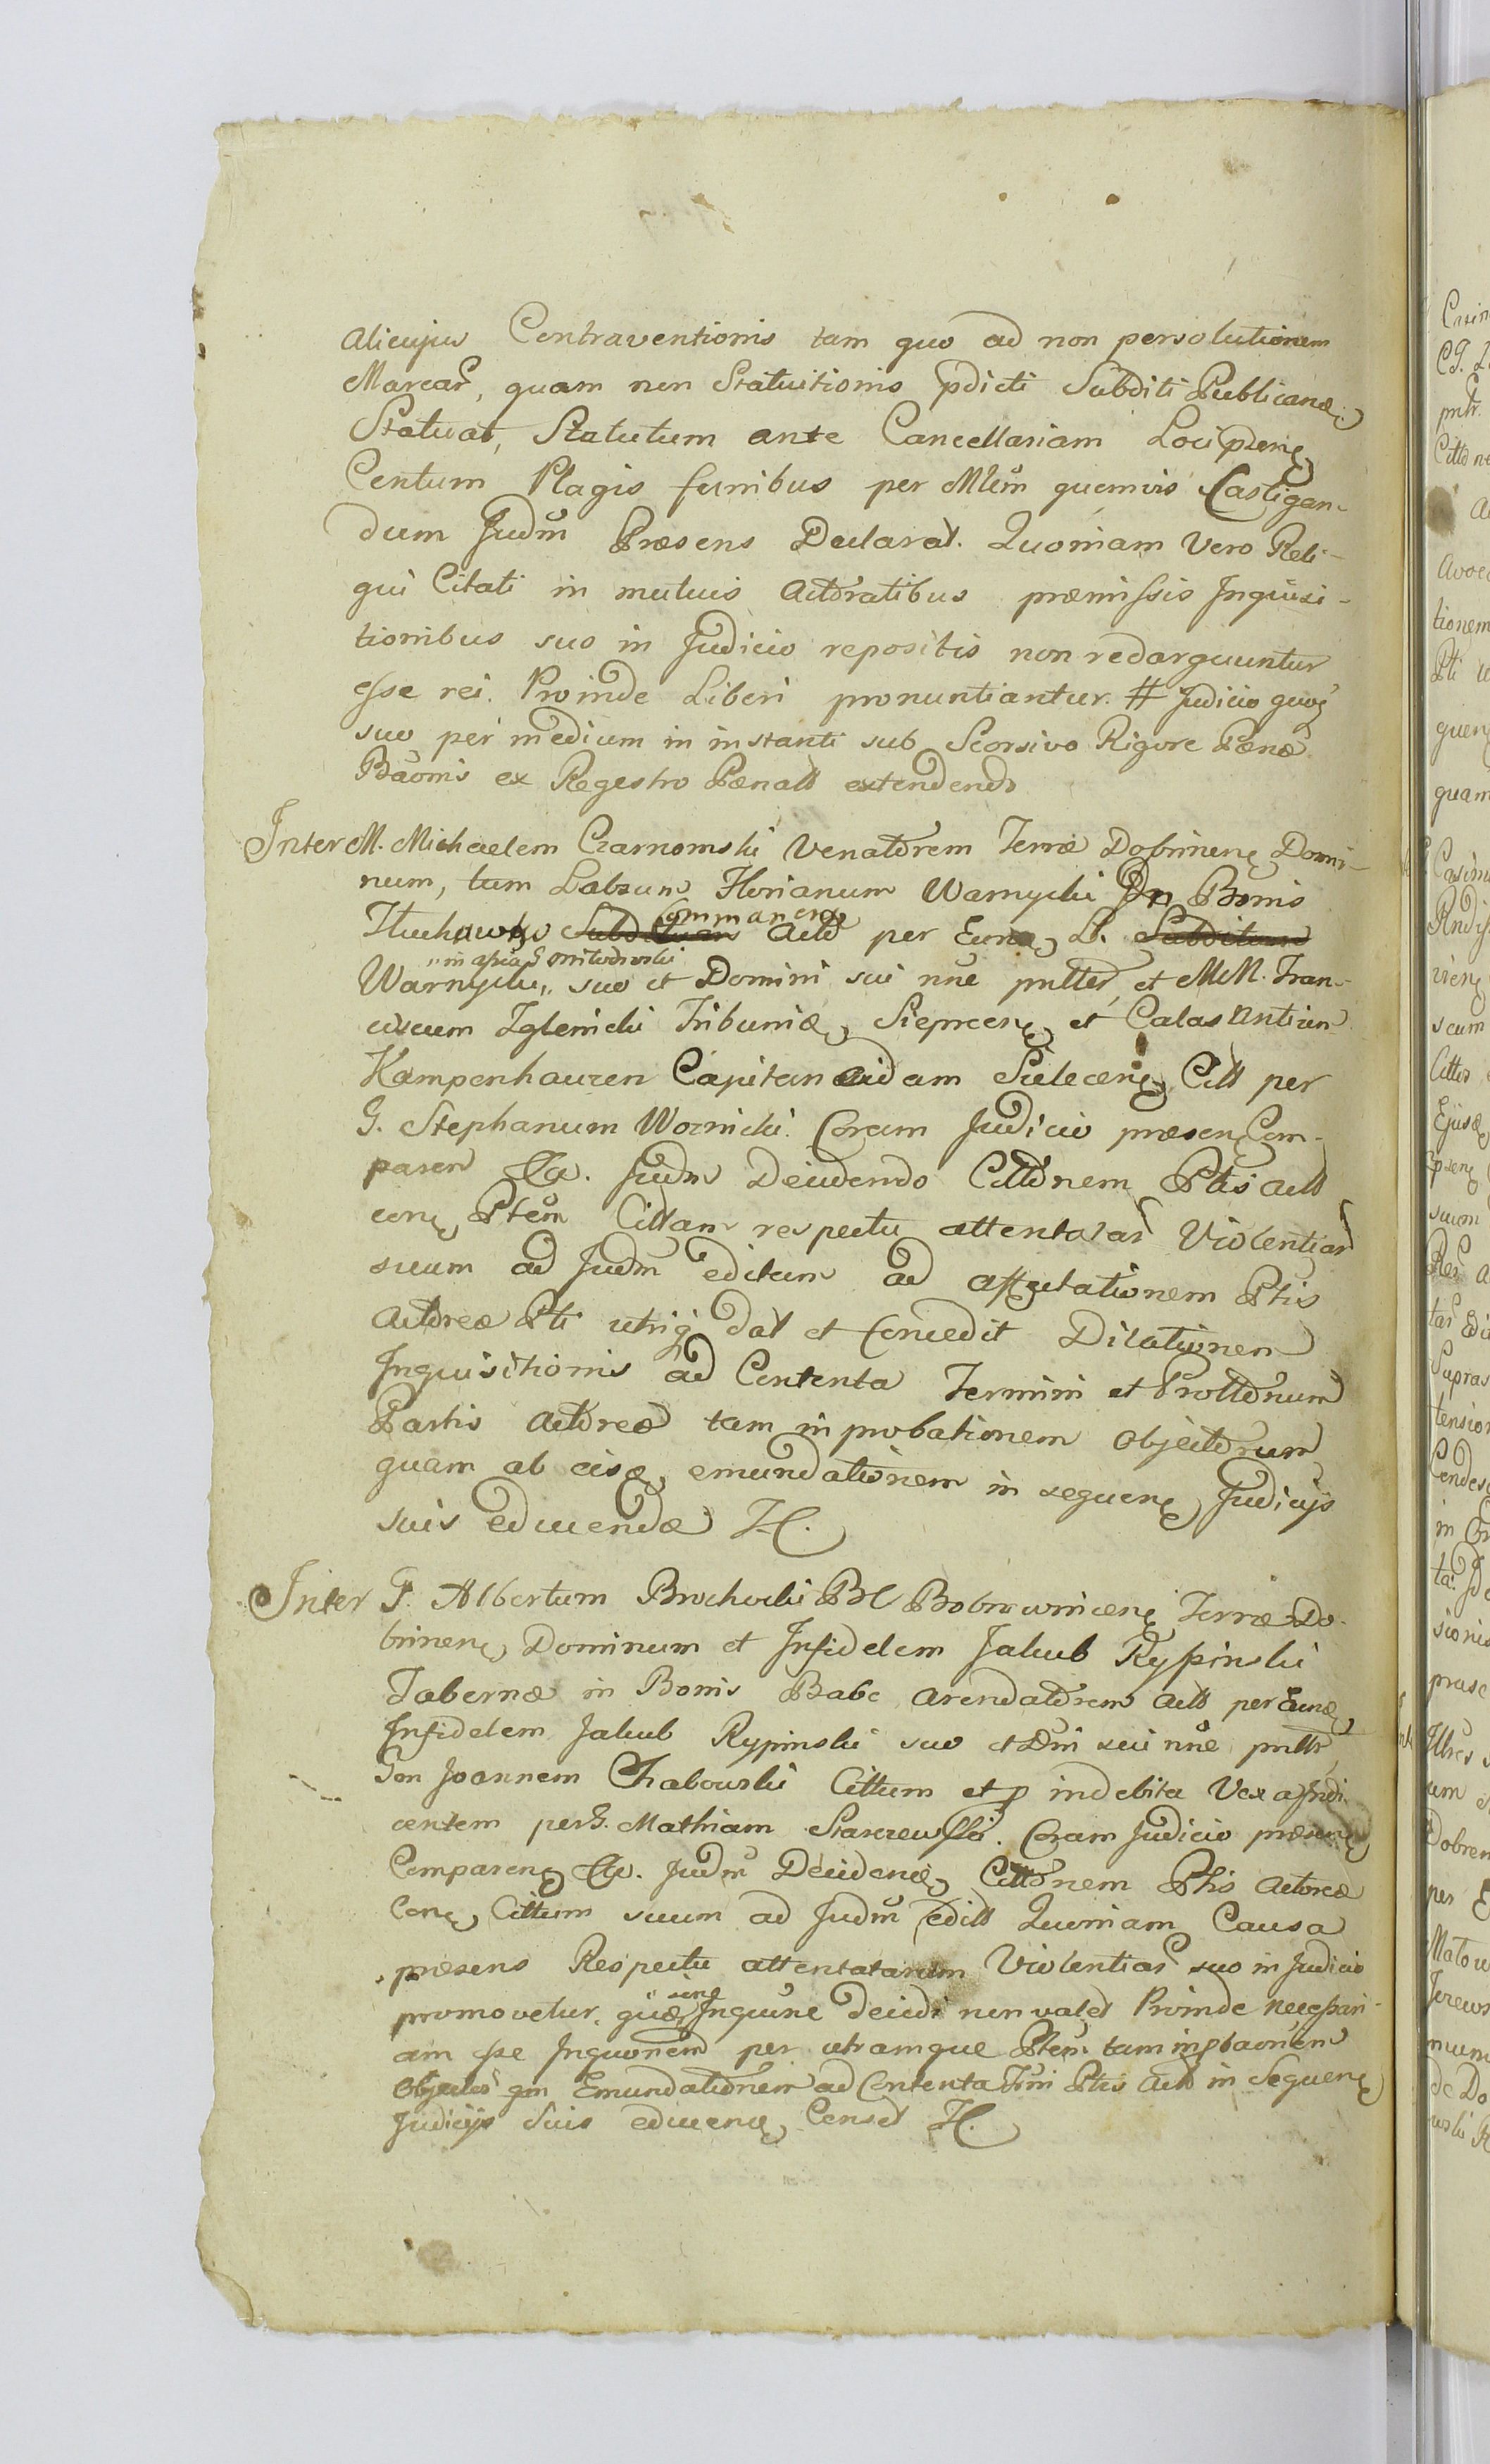 alicujus Contraventionis tam quo ad non persolutionem
Marcar, quam non Statuitionis pdicti Subditi Publicanæ
Statuat, Statutum ante Cancellariam Loci psen
Centum Plagis funibus per Mlem quemvis Castigan-
dum Judm Præsens Declarat. Quoniam Vero Reli-
qui Citati in mutuis Actoratibus præmissis Inquisi-
tionibus suo in Judicio repositis non redarguuntur
esse rei. Proinde Liberi pronuntiantur. # Judicio quoq
suo per medium in instanti sub Seorsivo Rigore Pænæ
Baonis ex Regestro Pænall extendendo
Inter M. Michaelem Czarnomski Venatorem Terræ Dobrinen Domi-
num, tum Labsum Florianum Warnycki In Bonis
Commanen
Actd per Eun L. Subditum
Warnycki,, suo et Domini sui nne pntter, et MM. Fran-
ciscum Zglenicki Tribunid, Sieprcen, et Calas
Kampenhauzen Capitaneidam Sieleceng, Citt per
G. Stephanum Woznicki. Coram Judicio præsen Com-
paren Judm Decidendo Cittonem Ptis actt
cen, Ptem Cittam respectu attentatar Violentiar
suum ad Judm editam ad affectationem Ptis
Actoreæ Pti utriq dat et Concedit Dilationem
Inquisitionis ad Contenta Termini et Prottonum
Partis Actoreæ tam in probationem objectorum
quam ab eisd, emundationem in sequen, Judicijs
suis educendæ H.
Inter G. Albertum Brochocki BC Bobrownicen, Terræ Do-
brinen, Dominum et Infidelem Jakub Rypinski
Tabernæ in Bonis Babc arendatorem actt per Eund,
Infidelem Jakub Rypinski suo et Dni sui nne pnttr
Gen Joannem Chabowski Cittum et p indebita Vexa Indi-
centem per G. Mathiam Starczewski. Coram Judicio præsen
Comparen, Judm Decidend, Cittonem Ptis actoreæ
Cen, Cittum suum ad Judm editt Quoniam Causa
præsens Respectu attentatarum Violentiar suo in Judicio
sine
promovetur, quæ Inquine decidi non valet Proinde necessari-
am sse Inquonem per utramque Ptem tam in pbaonem
objector qm Emundationem ad Contenta Tmi Ptis actt in Sequen
Judicijs suis educen, Censet H.